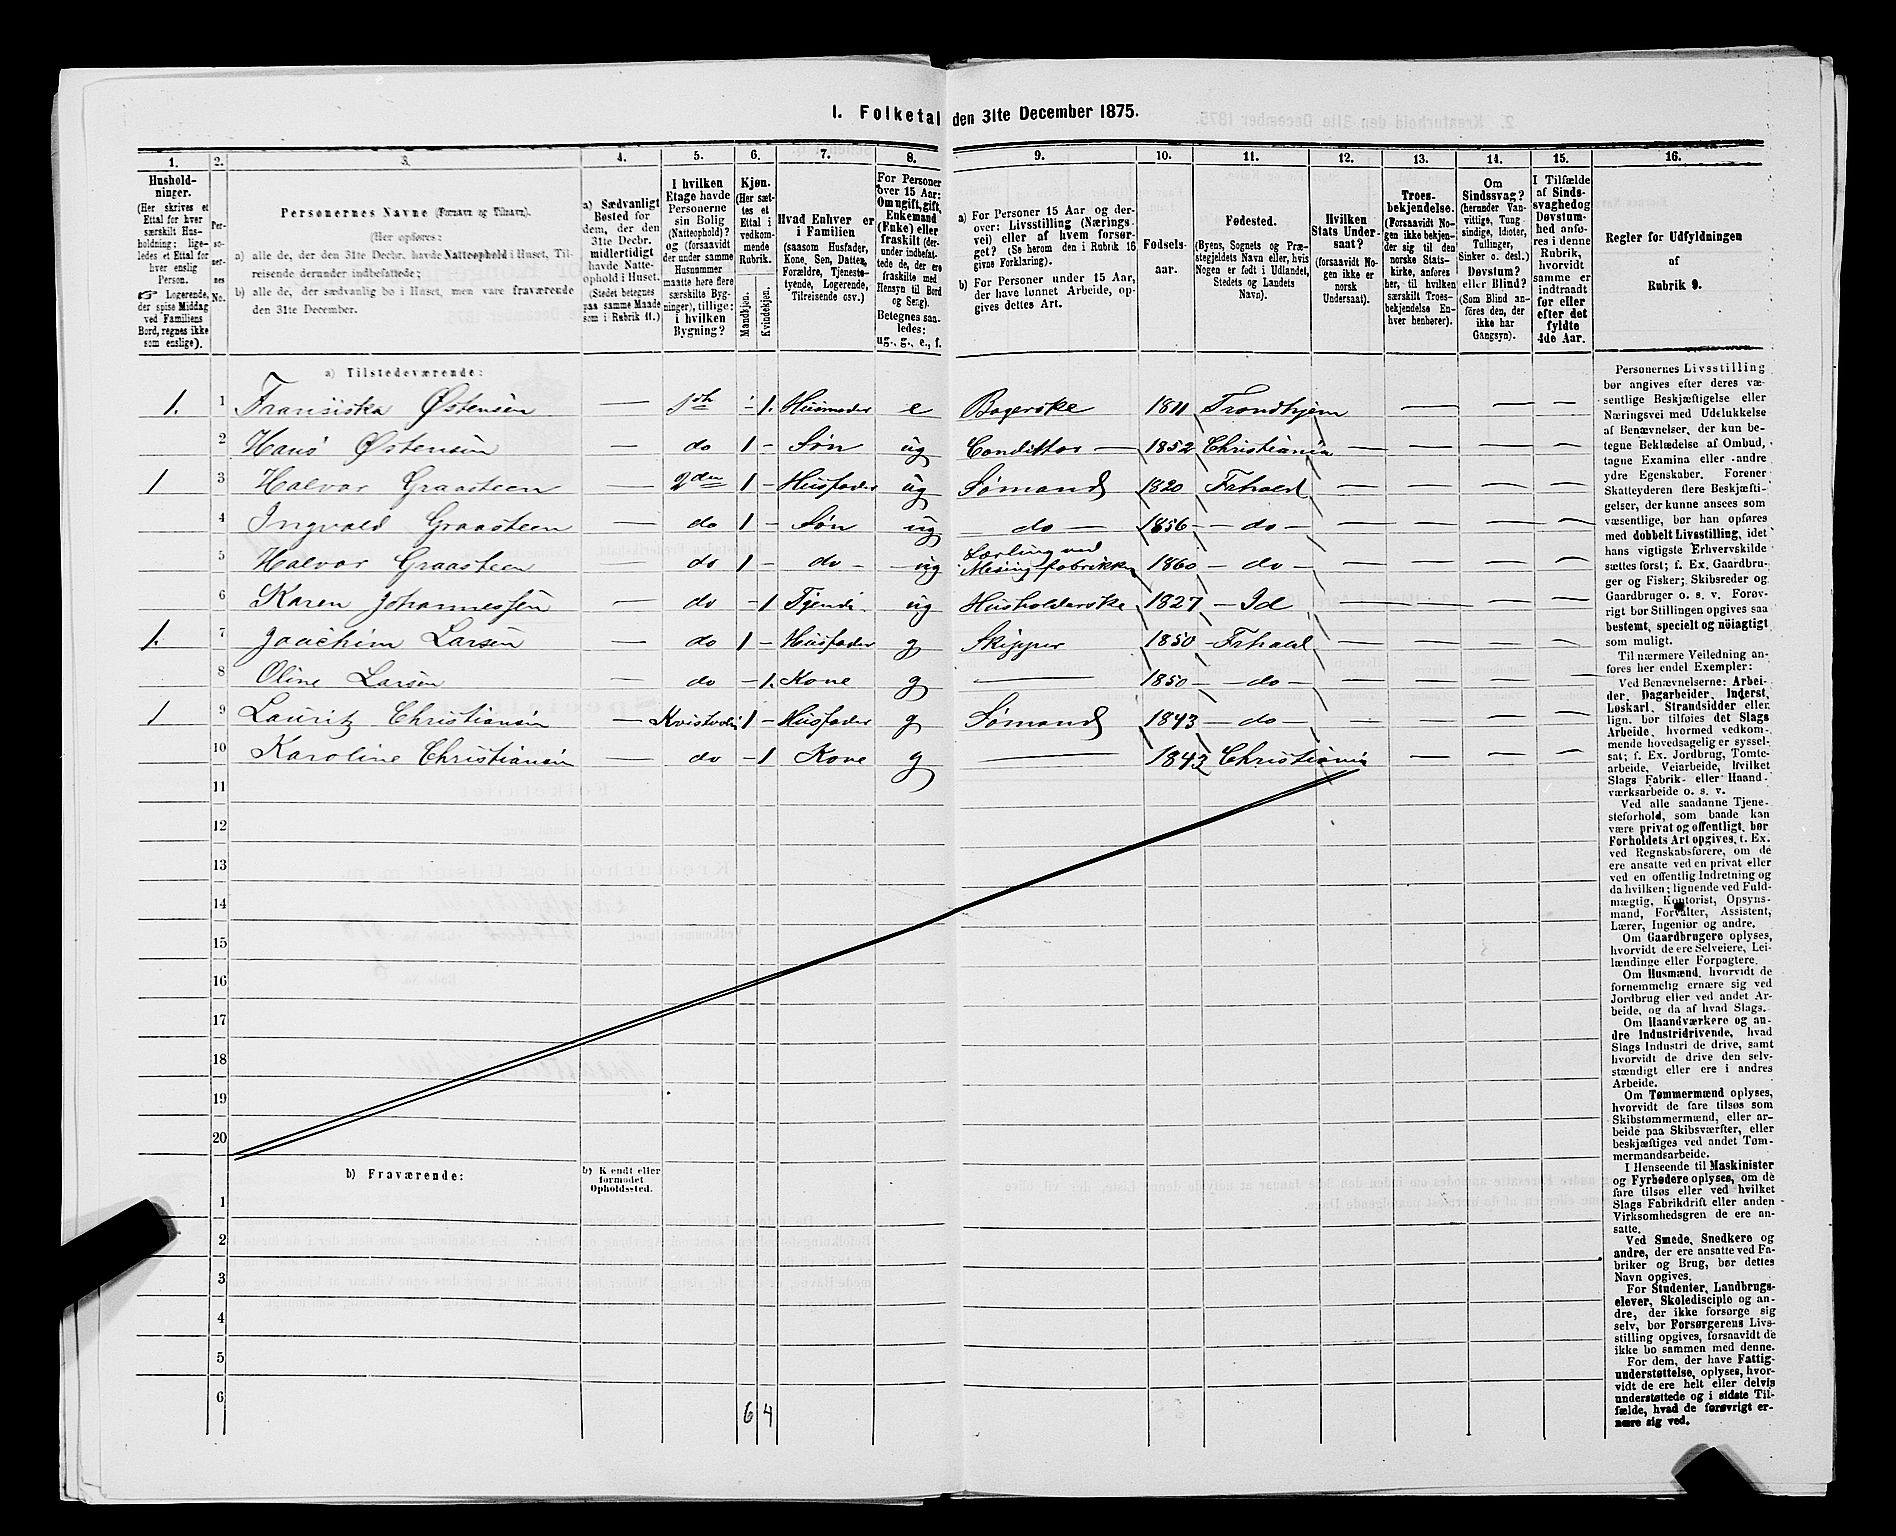 1. Folketal den 31te December 1875.
1. 2. 3. 4. 5. 6. 7. 8. 9. 10. 11. 12. 13. 14. 15. 16.
Hushold-
ninger.
(Her skrives et
Ettal for hver
særskilt Hus-
holdning; lige-
ledes et Ettal for
hver enslig
Person.
☞ Logerende,
der spise Middag
ved Familiens
Bord, regnes ikke
som enslige).
Per-
so-
ner-
nes
No.
Personernes Navne (Fornavn og Tilnavn).
(Her opføres:
a) alle de, der den 31te Decbr. havde Natteophold i Huset, Til-
reisende derunder indbefattede;
b) alle de, der sædvanlig bo i Huset, men vare fraværende
den 31te December.
a) Sædvanligt
Bosted for
dem, der den
31te Decbr.
midlertidigt
havde Natte-
ophold i Huset.
(Stedet betegnes
paa samme Maade
som i Rubrik 11.)
I hvilken
Etage havde
Personerne
sin Bolig
(Natteophold)?
og (forsaavidt
der under samme
Husnummer
maatte høre flere
særskilte Byg-
ninger), tillige:
i hvilken
Bygning?
Kjøn.
(Her sæt-
tes et
Ettal i
vedkom-
mende
Rubrik.
Mandkjøn.
Kvindekjøn.
Hvad Enhver er
i Familien
(saasom Husfader,
Kone, Søn, Datter,
Forældre, Tjeneste-
tyende, Logerende,
Tilreisende osv.)
For Personer
over 15 Aar:
Om ugift, gift,
Enkemand
(Enke) eller
fraskilt (der-
under indbefat-
tede de, der ere
fraskilte med
Hensyn til Bord
og Seng).
Betegnes saa-
ledes:
ug., g., e., f.
a) For Personer 15 Aar og der-
over: Livsstilling (Nærings-
vei) eller af hvem forsør-
get? (Se herom den i Rubrik 16
givne Forklaring).
b) For Personer under 15 Aar,
der have lønnet Arbeide, op-
gives dettes Art.
Fødsels-
aar.
Fødested.
(Byens, Sognets og Præ-
stegjeldets Navn eller, hvis
Nogen er født i Udlandet,
Stedets og Landets
Navn).
Hvilken
Stats Under-
saat?
(forsaavidt No-
gen ikke er
norsk
Undersaat).
Troes-
bekjendelse.
(Forsaavidt No-
gen ikke bekjen-
der sig til den
norske Stats-
kirke, anføres
her, til hvilken
særskilt Troes-
bekjendelse En-
hver henhører).
Om
Sindssvag?
(herunder Van-
vittige, Tung-
sindige, Idioter,
Tullinger,
Sinker o. desl.)
Døvstum?
eller Blind?
(Som Blind an-
føres den, der
ikke har
Gangsyn).
I Tilfælde
af Sinds-
svaghed og
Døvstum-
hed anfø-
res i denne
Rubrik,
hvorvidt
samme er
indtraadt
før eller
efter det
fyldte
4de Aar.
Regler for Udfyldningen
af
Rubrik 9.
a) Tilstedeværende:
1. 1 Fransiska Østensen — 1ste - 1. Husmoder e Bagerske 1811 Trondhjem — — — —
2 Hans Østensen — do 1 - Søn ug Condittor — 1852 Christiania — — — —
1 3 Halvor Graasteen — 2den 1 - Husfader ug Sømand 1820 Frhald — — — —
4 Ingvald Graasteen — do 1 - Søn ug — do — 1856 — do — — — — —
5 Halvor Graasteen — do 1 - do - ug Lærling ved
Messingfabrikke 1860 — do — — — — —
6 Karen Johannessen — do - 1 Tjendi. ug Husholderske 1827 — Id — — — —
1. 7 Joachim Larsen — do 1 - Husfader g Skipper 1850 — Frhald — — — —
8 Oline Larsen — do - 1. Kone g — 1850 — do — — — — —
1 9 Lauritz Christiansen — Kvistvaan 1 - Husfader g Sømand 1843 — do — — — — —
10 Karoline Christiansen — do - 1 Kone g — 1842 Christiania — — —
11
12
13
14
15
16
17
18
19
20
b) Fraværende:
b) Kjendt eller
formodet
Opholdssted.
1
2
3
4
5
6
6 4
Personernes Livsstilling
bør angives efter deres væ-
sentlige Beskjæftigelse eller
Næringsvei med Udelukkelse
af Benævnelser, der kun be-
tegne Beklædelse af Ombud,
tagne Examina eller andre
ydre Egenskaber. Forener
Skatteyderen flere Beskjæfti-
gelser, der kunne ansees som
væsentlige, bør han opføres
med dobbelt Livsstilling, idet
hans vigtigste Erhvervskilde
sættes først; f. Ex. Gaardbru-
ger og Fisker; Skibsreder og
Gaardbruger o. s. v. Forøv-
rigt bør Stillingen opgives saa
bestemt, specielt og nöiagtigt
som muligt.
Til nærmere Veiledning an-
føres her endel Exempler:
Ved Benævnelserne: Arbei-
der, Dagarbeider, Inderst,
Løskarl, Strandsidder eller
lign. bør tilføies det Slags
Arbeide, hvormed vedkom-
mende hovedsagelig er syssel-
sat; f. Ex. Jordbrug, Tomte-
arbeide, Veiarbeide, hvilket
Slags Fabrik- eller Haand-
værksarbeide o. s. v.
Ved alle saadanne Tjene-
steforhold, som baade kan
være privat og offentligt, bør
Forholdets Art opgives, t. Ex.
ved Regnskabsførere, om de
ere ansatte ved en privat eller
ved en offentlig Indretning og
da hvilken; lignende ved Fuld-
mægtig, Kontorist, Opsyns-
mand, Forvalter, Assistent,
Lærer, Ingeniør og andre.
Om Gaardbrugere oplyses,
hvorvidt de ere Selveiere, Lei-
lændinge eller Forpagtere.
Om Husmænd, hvorvidt de
fornemmelig ernære sig ved
Jordbrug eller ved andet Ar-
beide, og da af hvad Slags.
Om Haandværkere og an-
dre Industridrivende, hvad
Slags Industri de drive, samt
hvorvidt de drive den selv-
stændigt eller ere i andres
Arbeide.
Om Tømmermænd oplyses,
hvorvidt de fare tilsøs som
Skibstømmermænd, eller ar-
beide paa Skibsværfter, eller
beskjæftiges ved andet Tøm-
mermandsarbeide.
I Henseende til Maskinister
og Fyrbødere oplyses, om de
fare tilsøs eller ved hvilket
Slags Fabrikdrift eller anden
Virksomhedsgren de ere an-
satte.
Ved Smede, Snedkere og
andre, der ere ansatte ved Fa-
briker og Brug, bør dettes
Navn opgives.
For Studenter, Landbrugs-
elever, Skoledisciple og an-
dre, der ikke forsørge sig
selv, bør Forsørgerens Livs-
stilling opgives, forsaavidt de
ikke bo sammen med denne.
For dem, der have Fattig-
understøttelse, oplyses, hvor-
vidt de ere helt eller delvis
understøttede og i sidste Til-
fælde, hvad de forøvrigt er-
nære sig ved.